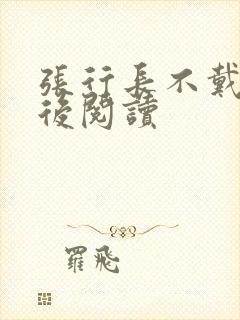 張行長不戴
後閱讀
羅飛